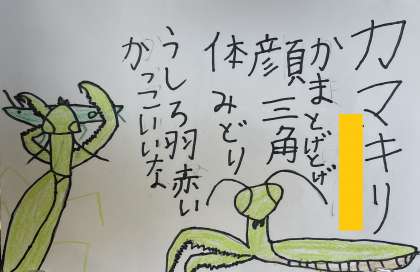 カマキリ
かまとげとげ
顔三角
体みどり
うしろ羽赤い
かっこいいな